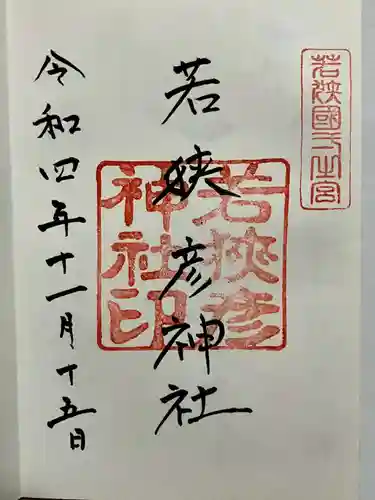 若狹國一之宮
若狹彦神社
若狹彦
神社印
令和四年十一月十五日